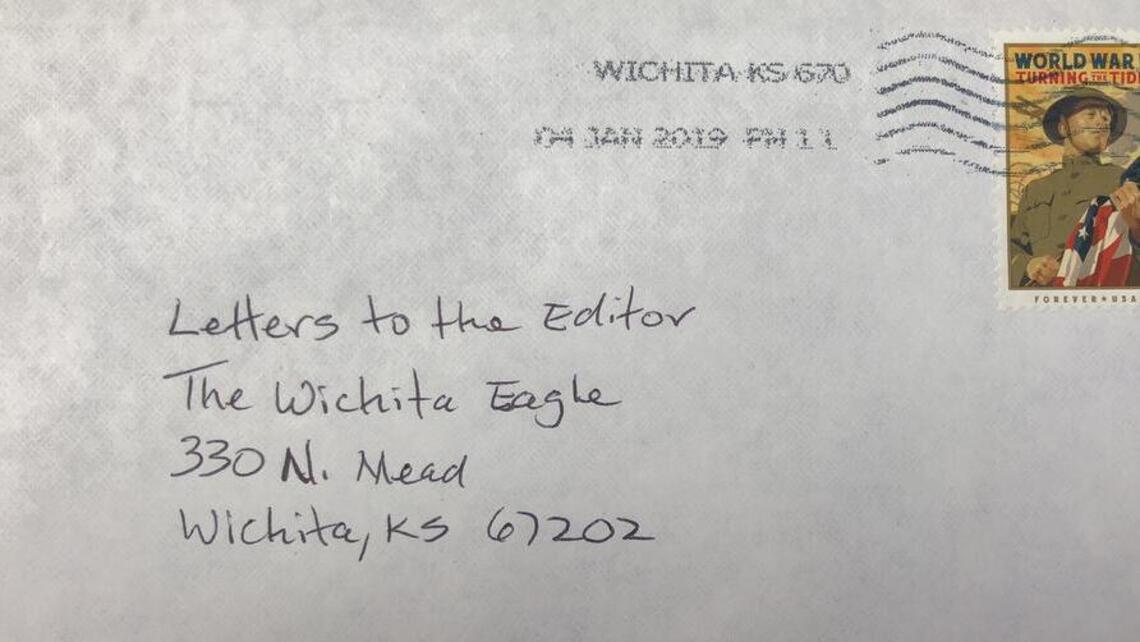 WICHITA KS 670
04 JAN 2019 PM 1 1
WORLD WAR
TURNING THE TIDE
FOREVER USA
Letters to the Editor
The Wichita Eagle
330 N. Mead
Wichita, KS 67202